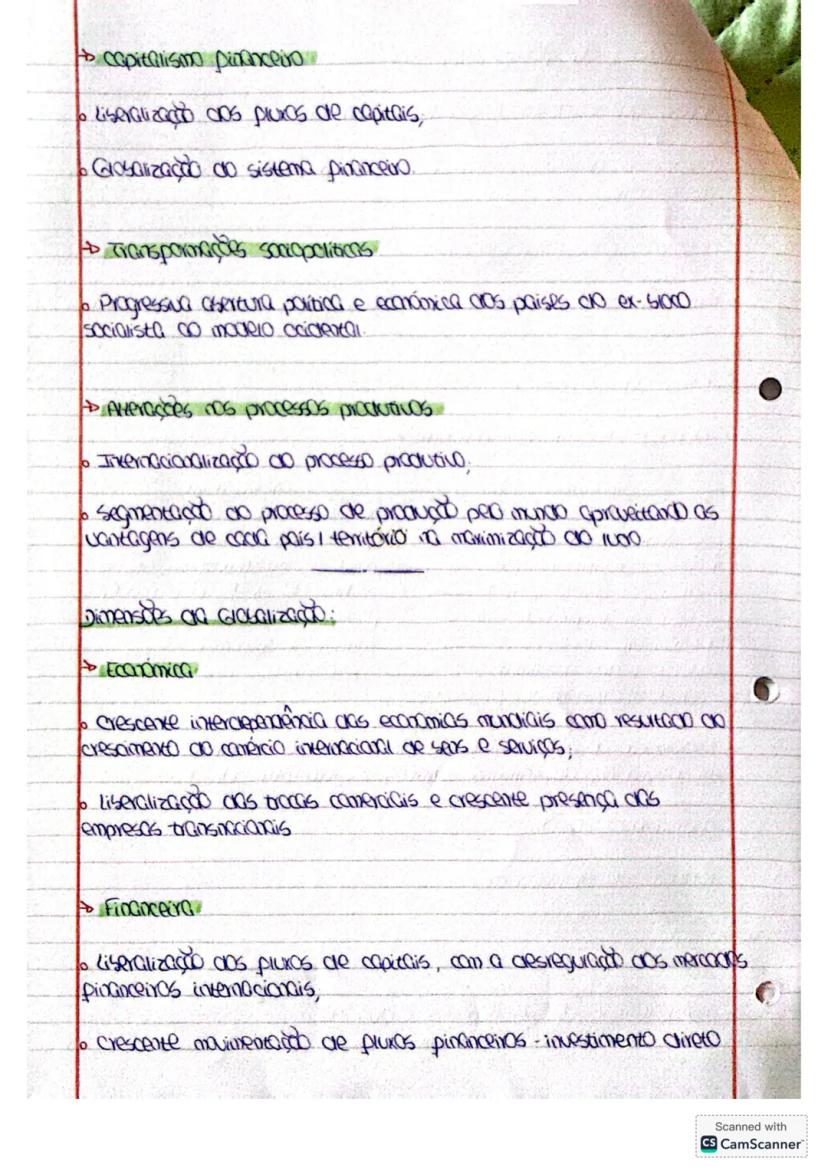 → Capitalismo financeiro
• Liberalização dos fluxos de capitais;
• Globalização do sistema financeiro.
→ Transformações sociopolíticas
• Progressiva abertura política e económica dos países do ex-bloco
socialista ao modelo ocidental.
→ Alterações nos processos produtivos
• Internacionalização do processo produtivo;
• Segmentação do processo de produção pelo mundo aproveitando as
vantagens de cada país/território na maximização do lucro.
Dimensões da Globalização:
→ Económica
• Crescente interdependência das economias mundiais como resultado do
crescimento do comércio internacional de bens e serviços;
• Liberalização das trocas comerciais e crescente presença das
empresas transnacionais
→ Financeira
• Liberalização dos fluxos de capitais, com a desregulação dos mercados
financeiros internacionais,
• Crescente movimentação de fluxos financeiros - investimento direto
Scanned with
CS CamScanner